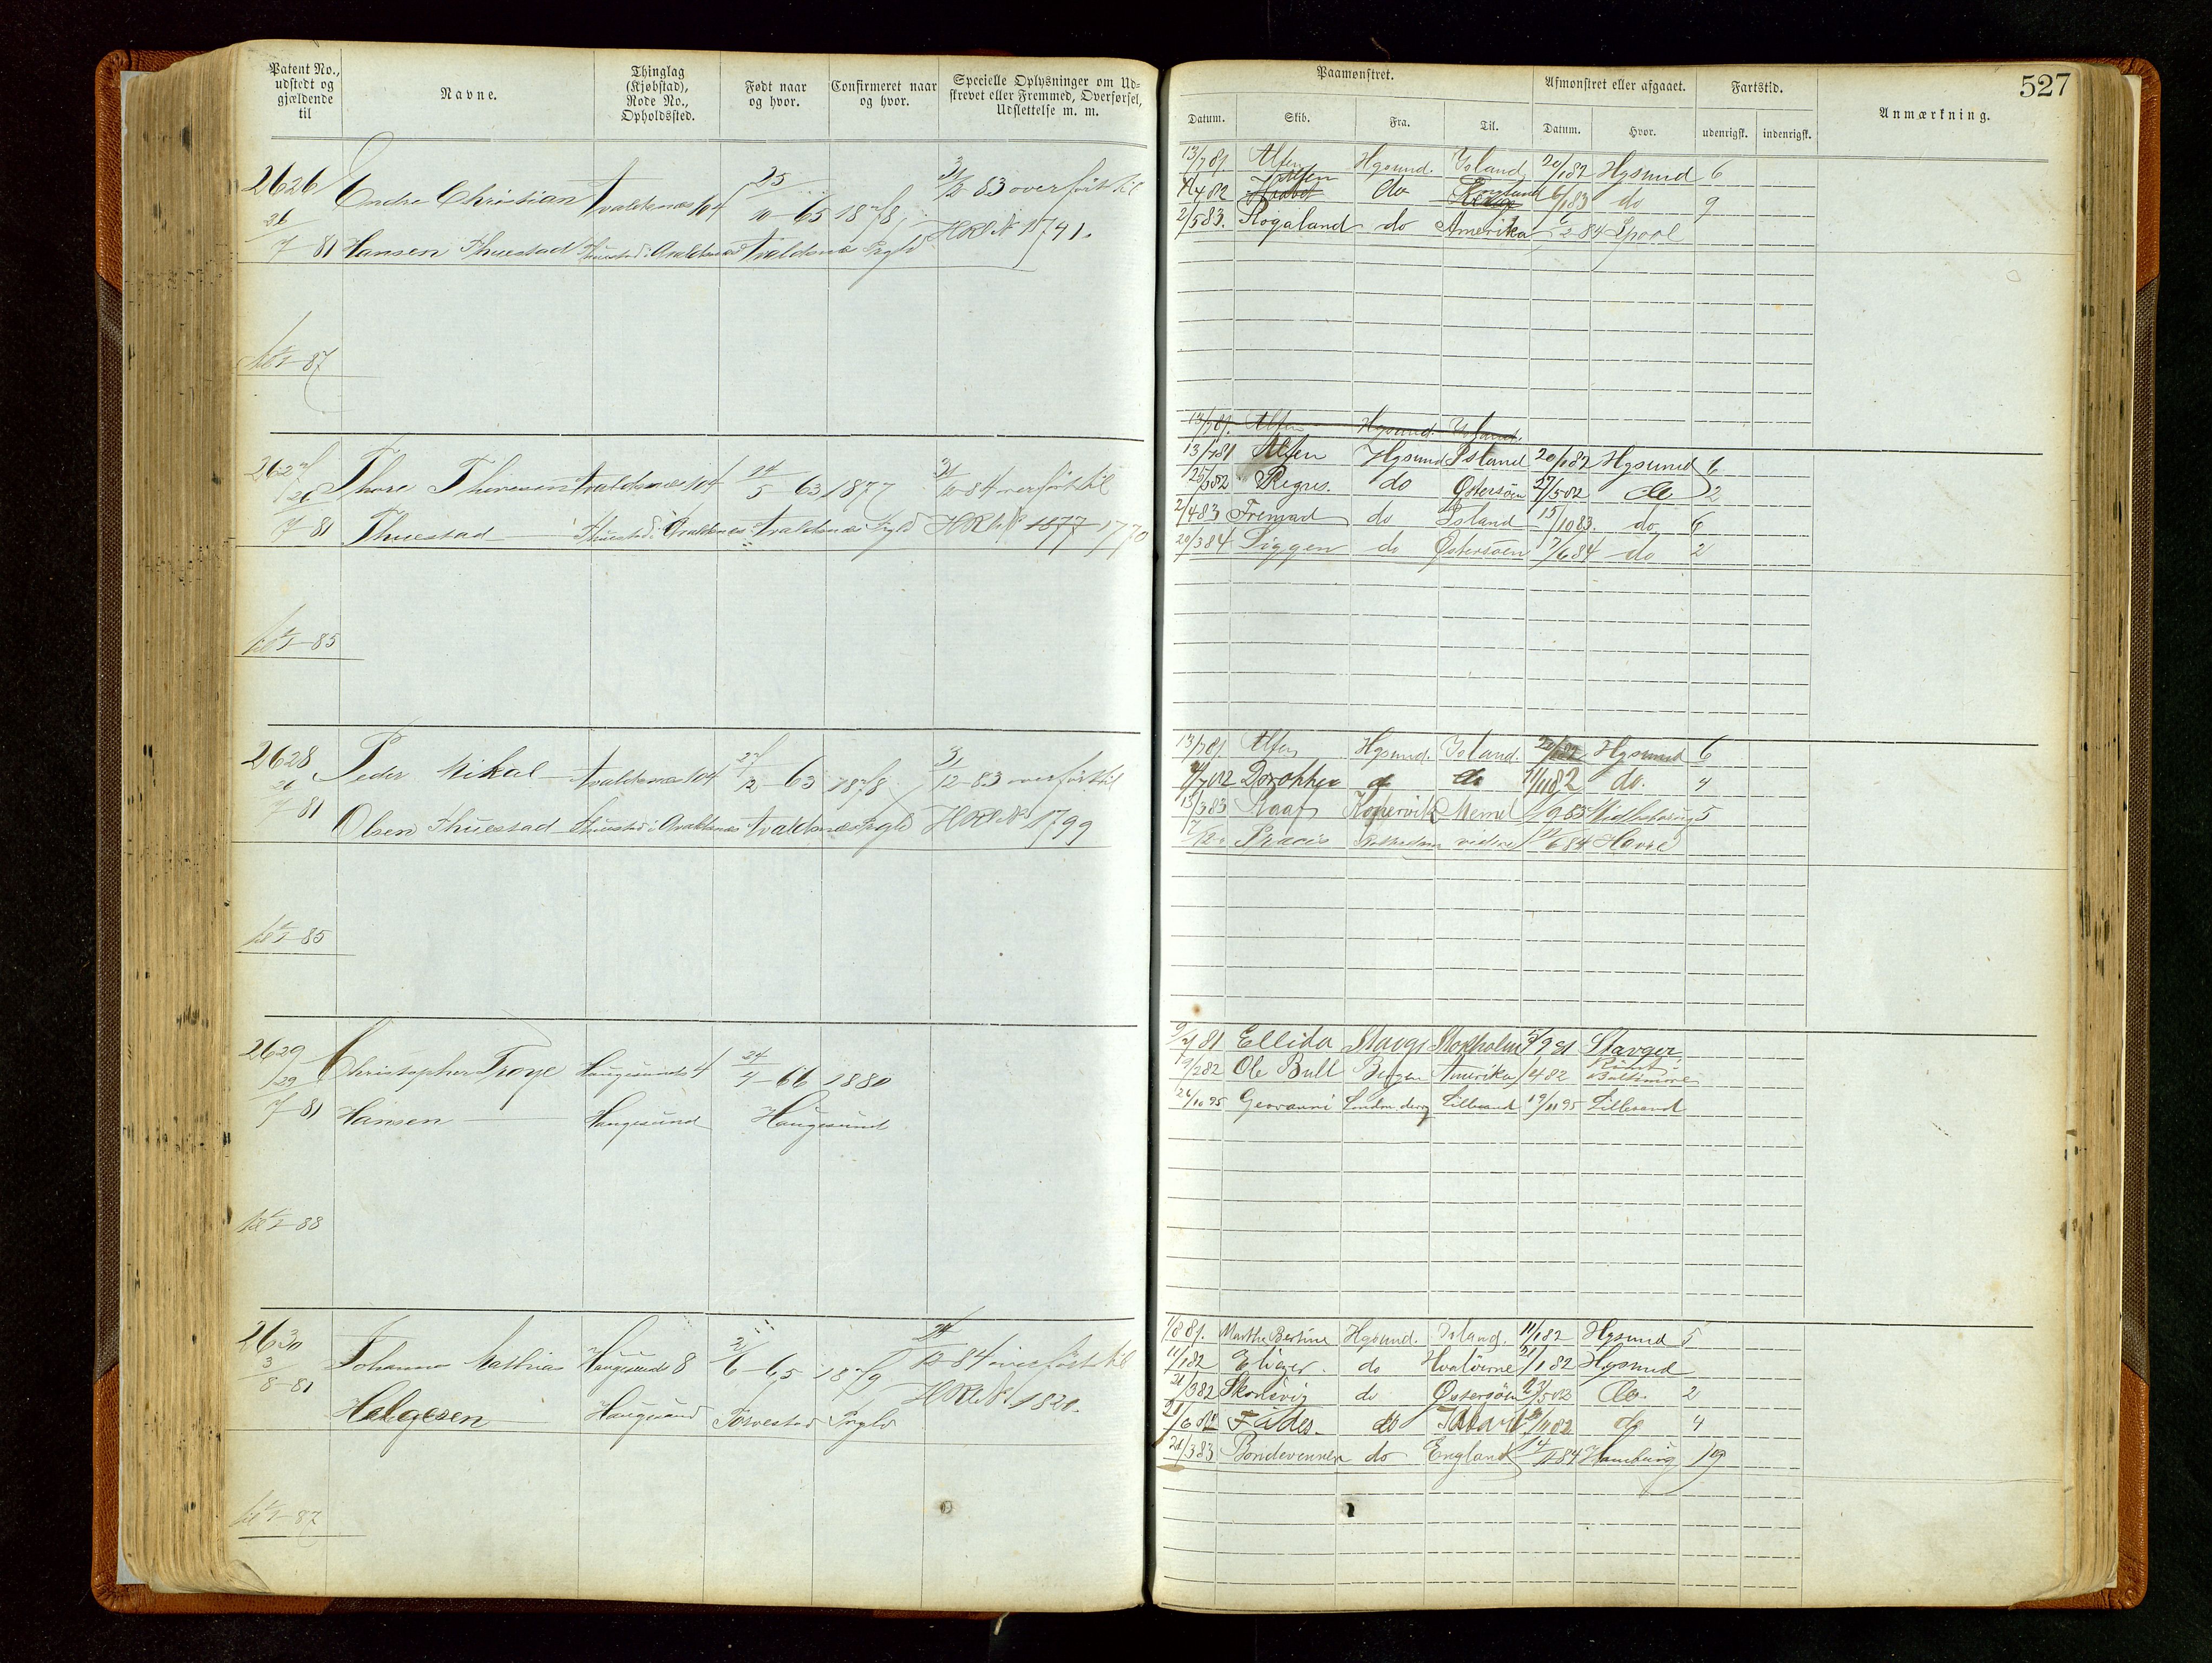 Patent No.,
udstedt og
gjældende
til
Navne.
Thinglag
(Kjøbstad),
Rode No.,
Opholdssted.
Født naar
og hvor.
Confirmeret naar
og hvor.
Specielle Oplysninger om Ud-
skrevet eller Fremmed, Overførsel,
Udslettelse m. m.
2626 Endre Christian Avaldsnæs 104 25/10-65 1878 31/12 83 overført til
26/7 81 Hansen Thuestad Thuestad i Avaldsnæs Avaldsnæs Prgld HRl No 1741.
til 1/1-87
2627 Thore Thoresen Avaldsnæs 104 14/5-63 1877 31/12-84 overført til
26/7 81 Thuestad Thuestad i Avaldsnæs Avaldsnæs Prgld HRl No 1877 1770
til 1/1-85
2628 Peder Mikal Avaldsnæs 104 27/12-63 1878 31/12-83 overført til
26/7 81 Olsen Thuestad Thuestad i Avaldsnæs Avaldsnæs Prgld HRl No 1799
til 1/1-85
2629 Christopher Troye Haugesunds 4 24/4-66 1880
29/7-81 Hansen Haugesund Haugesund
til 1/1-88
2630 Johannes Mathias Haugesund 8 2/6-65 1879 31/12-84 overført til
3/8-81 Helgesen Haugesund Torvestad Prgld HRl No 1820.
til 1/1-87
527
Paamønstret.
Afmønstret eller afgaaet.
Fartstid.
Anmærkning.
Datum.
Skib.
Fra.
Til.
Datum.
Hvor.
udenrigsk.
indenrigsk.
13/7 81. Alfen Hgsund. Island 20/1 82 Hgsund 6
4/4 82 Alfen do England 6/1 83 do 9
2/5 83. Rogaland do Amerika 6/2-84 Lpool
13/7 81. Alfen Hgsund. Island.
13/7 81 Alfen Hgsund Island 20/1 82 Hgsund 6
Regus. do Østersøen 27/5 82 do 2
2/4 83 Fremad do Island 15/10 83. do 6
20/3 84 Siggen do Østersøen 7/6 84 do 2
13/7 81. Alfen Hgsund. Island. Hgsund 6
4/7 82 Dorothea do do 11/11 82 do. 4
15/3 83 Staaf Kopervik Memel 5
Havre
9/7 81 Ellida Stavgr Stokholm 5/9 81 Stavger.
Rømt
19/2 82 Ole Bull Bergen Amerika /4 82 Baltimore
26/10 95 Geovanni Londonderry Lillesand 19/11 95 Lillesand
1/8 81. Marthe Bertine Hgsund. Island. 11/1 82 Hgsund 5
11/1 82 Eliezer. do Hvaløerne 21/1 82 Hgsund
21/3 82 Skodsvig do Østersøen 27/5 82 do. 2
21/6 82 Fides. do Island do 4
21/3 83 Bondevennen do England 14/1 84 Hamburg 10